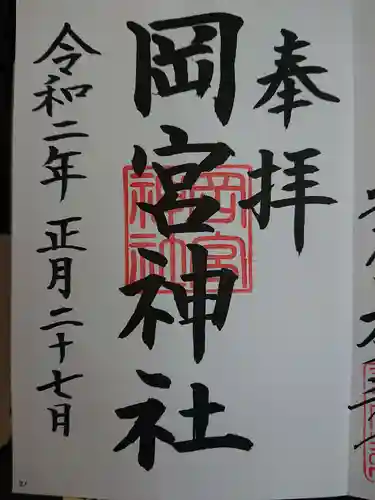 奉拝
岡宮神社
岡宮神社
令和二年正月二十七日